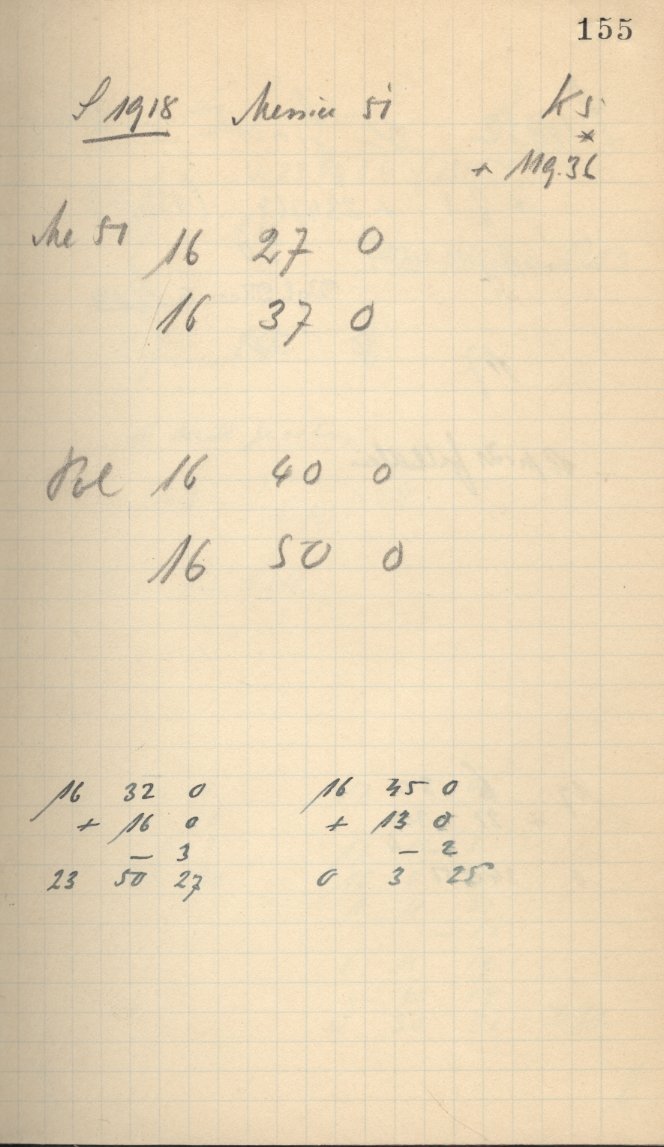 155
S 1918 Messier 51 K5
*
+ 119.36
Me 51 16 27 0
16 37 0
Pol 16 40 0
16 50 0
16 32 0 16 45 0
+ 16 0 + 13 0
– 3 – 2
23 50 27 0 3 25